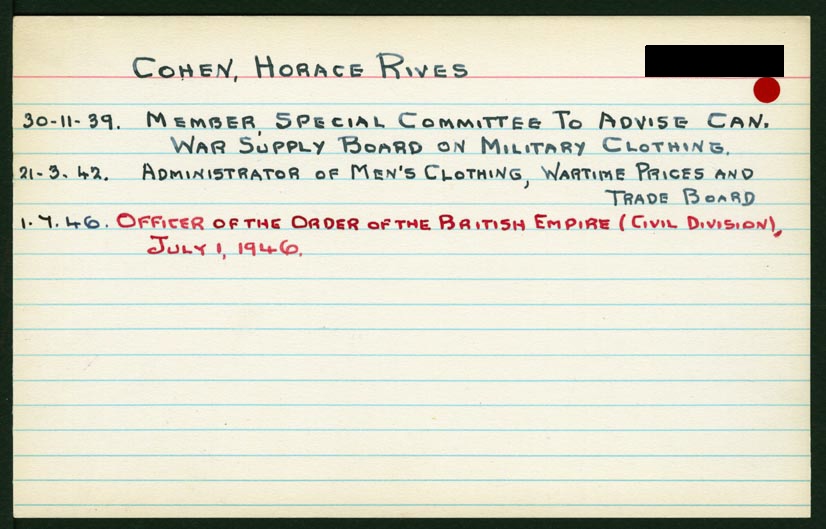 COHEN, HORACE RIVES
30-11-39. MEMBER, SPECIAL COMMITTEE TO ADVISE CAN.
WAR SUPPLY BOARD ON MILITARY CLOTHING.
21-3.42. ADMINISTRATOR OF MEN'S CLOTHING, WARTIME PRICES AND
TRADE BOARD
1.7.46. OFFICER OF THE ORDER OF THE BRITISH EMPIRE (CIVIL DIVISION),
JULY 1, 1946.